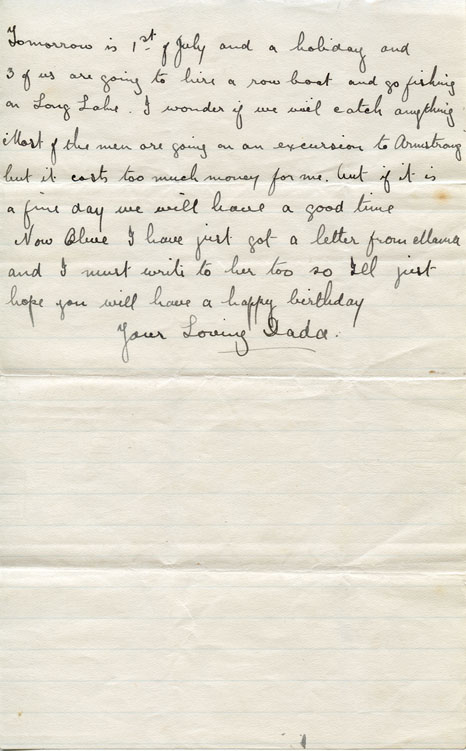 Tomorrow is 1st of July and a holiday and
3 of us are going to hire a row boat and go fishing
on Long Lake. I wonder if we will catch anything
Most of the men are going on an excursion to Armstrong
but it costs too much money for me. but if it is
a fine day we will have a good time
Now Blue I have just got a letter from Mama
and I must write to her too so I'll just
hope you will have a happy birthday
Your Loving Dada.